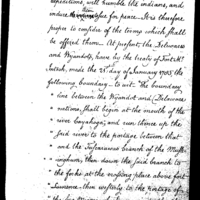 expeditions, will humble the Indians, and
induce them to sue for peace. It is therefore
proper to consider of the terms which shall
be offered them. — At present, the Delawares
and Wyandots, have by the treaty of Fort Mc
Intosh, made the 21st of January 1785, the
following boundary - to wit. "The boundary
" line between the Wyandot and Delaware
" nations, shall begin at the mouth of the
" river Cayahoga, and run thence up the
" said river to the portage between that
" and the Tuscarawas branch of the Musk-
" ingham; then down the said branch to
" the forks at the crossing place above fort
" Laurence - then westerly to the portage of